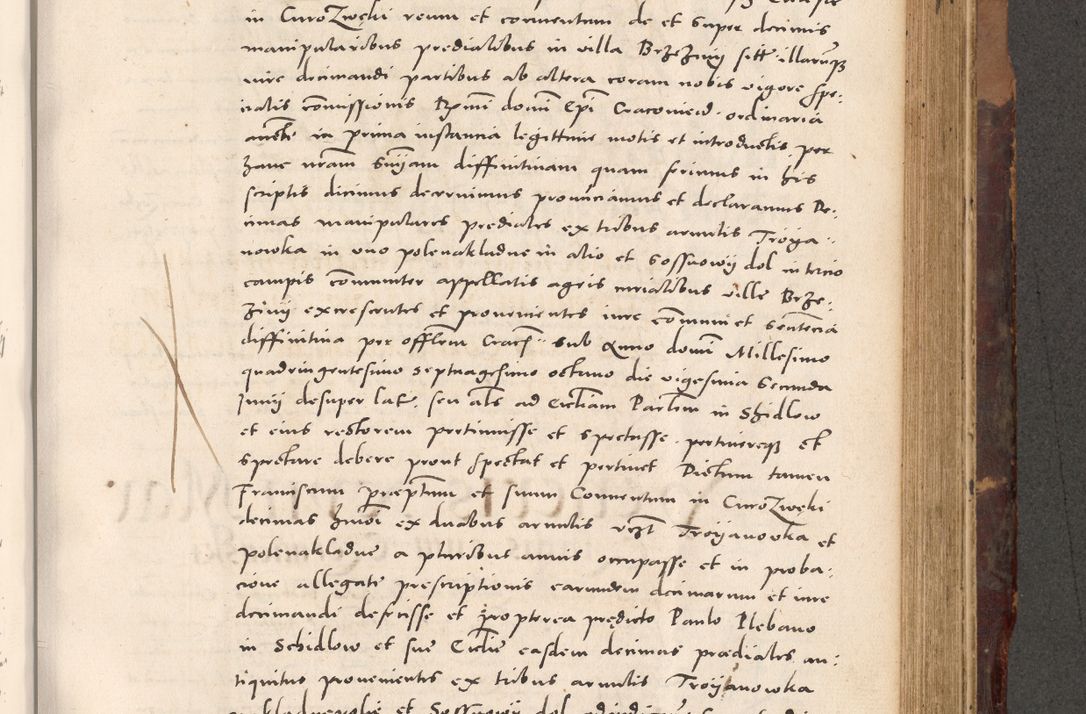 in CuroZwęki reum et conventum de et super decimis
manipularibus predialibus in villa BrzeZiny sitt. illarumq
iure decimandi partibus ab altera coram nobis vigore spe,
cialis comissionis Rmi domi Epi Cracovien. ordinaria
aucte in prima instancia legittime motis et introductis, per
hanc nram sniam diffinitivam quam ferimus in his
scriptis dicimus decernimus pronunciamus et declaramus De,
cimas manipulares prediales ex tribus areulis Troya,
nowka in uno polenakladne in alio et sossnowy dol in tercio
campis comuniter appellatis agris curialibus ville Brze,
ziny excrescentes et provenientes iure comuni et sentencia
diffinitiva per offlem Cracen. sub Anno domi Millesimo
quadringentesimo septuagesimo octavo die vigesima secunda
Junij desuper lat. seu als ad Ecliam Parlem in Shidlow
et eius rectorem pertinuisse et spectasse, pertinereq et
spectare debere prout spectat et pertinet Dictum tamen
Franciscum preptum et suum Conventum in CuroZwęki
decimas hmoi ex duabus areulis vizt Troyanowka et
polenakladne a pluribus annis occupasse et in proba,
cione allegate prescriptionis earundem decimarum et iure
decimandi defecisse et propterea predicto Paulo Plebano
in Schidlow et sue Eclie easdem decimas prædiales an,
tiquitus provenientes ex tribus areulis Troyanowka